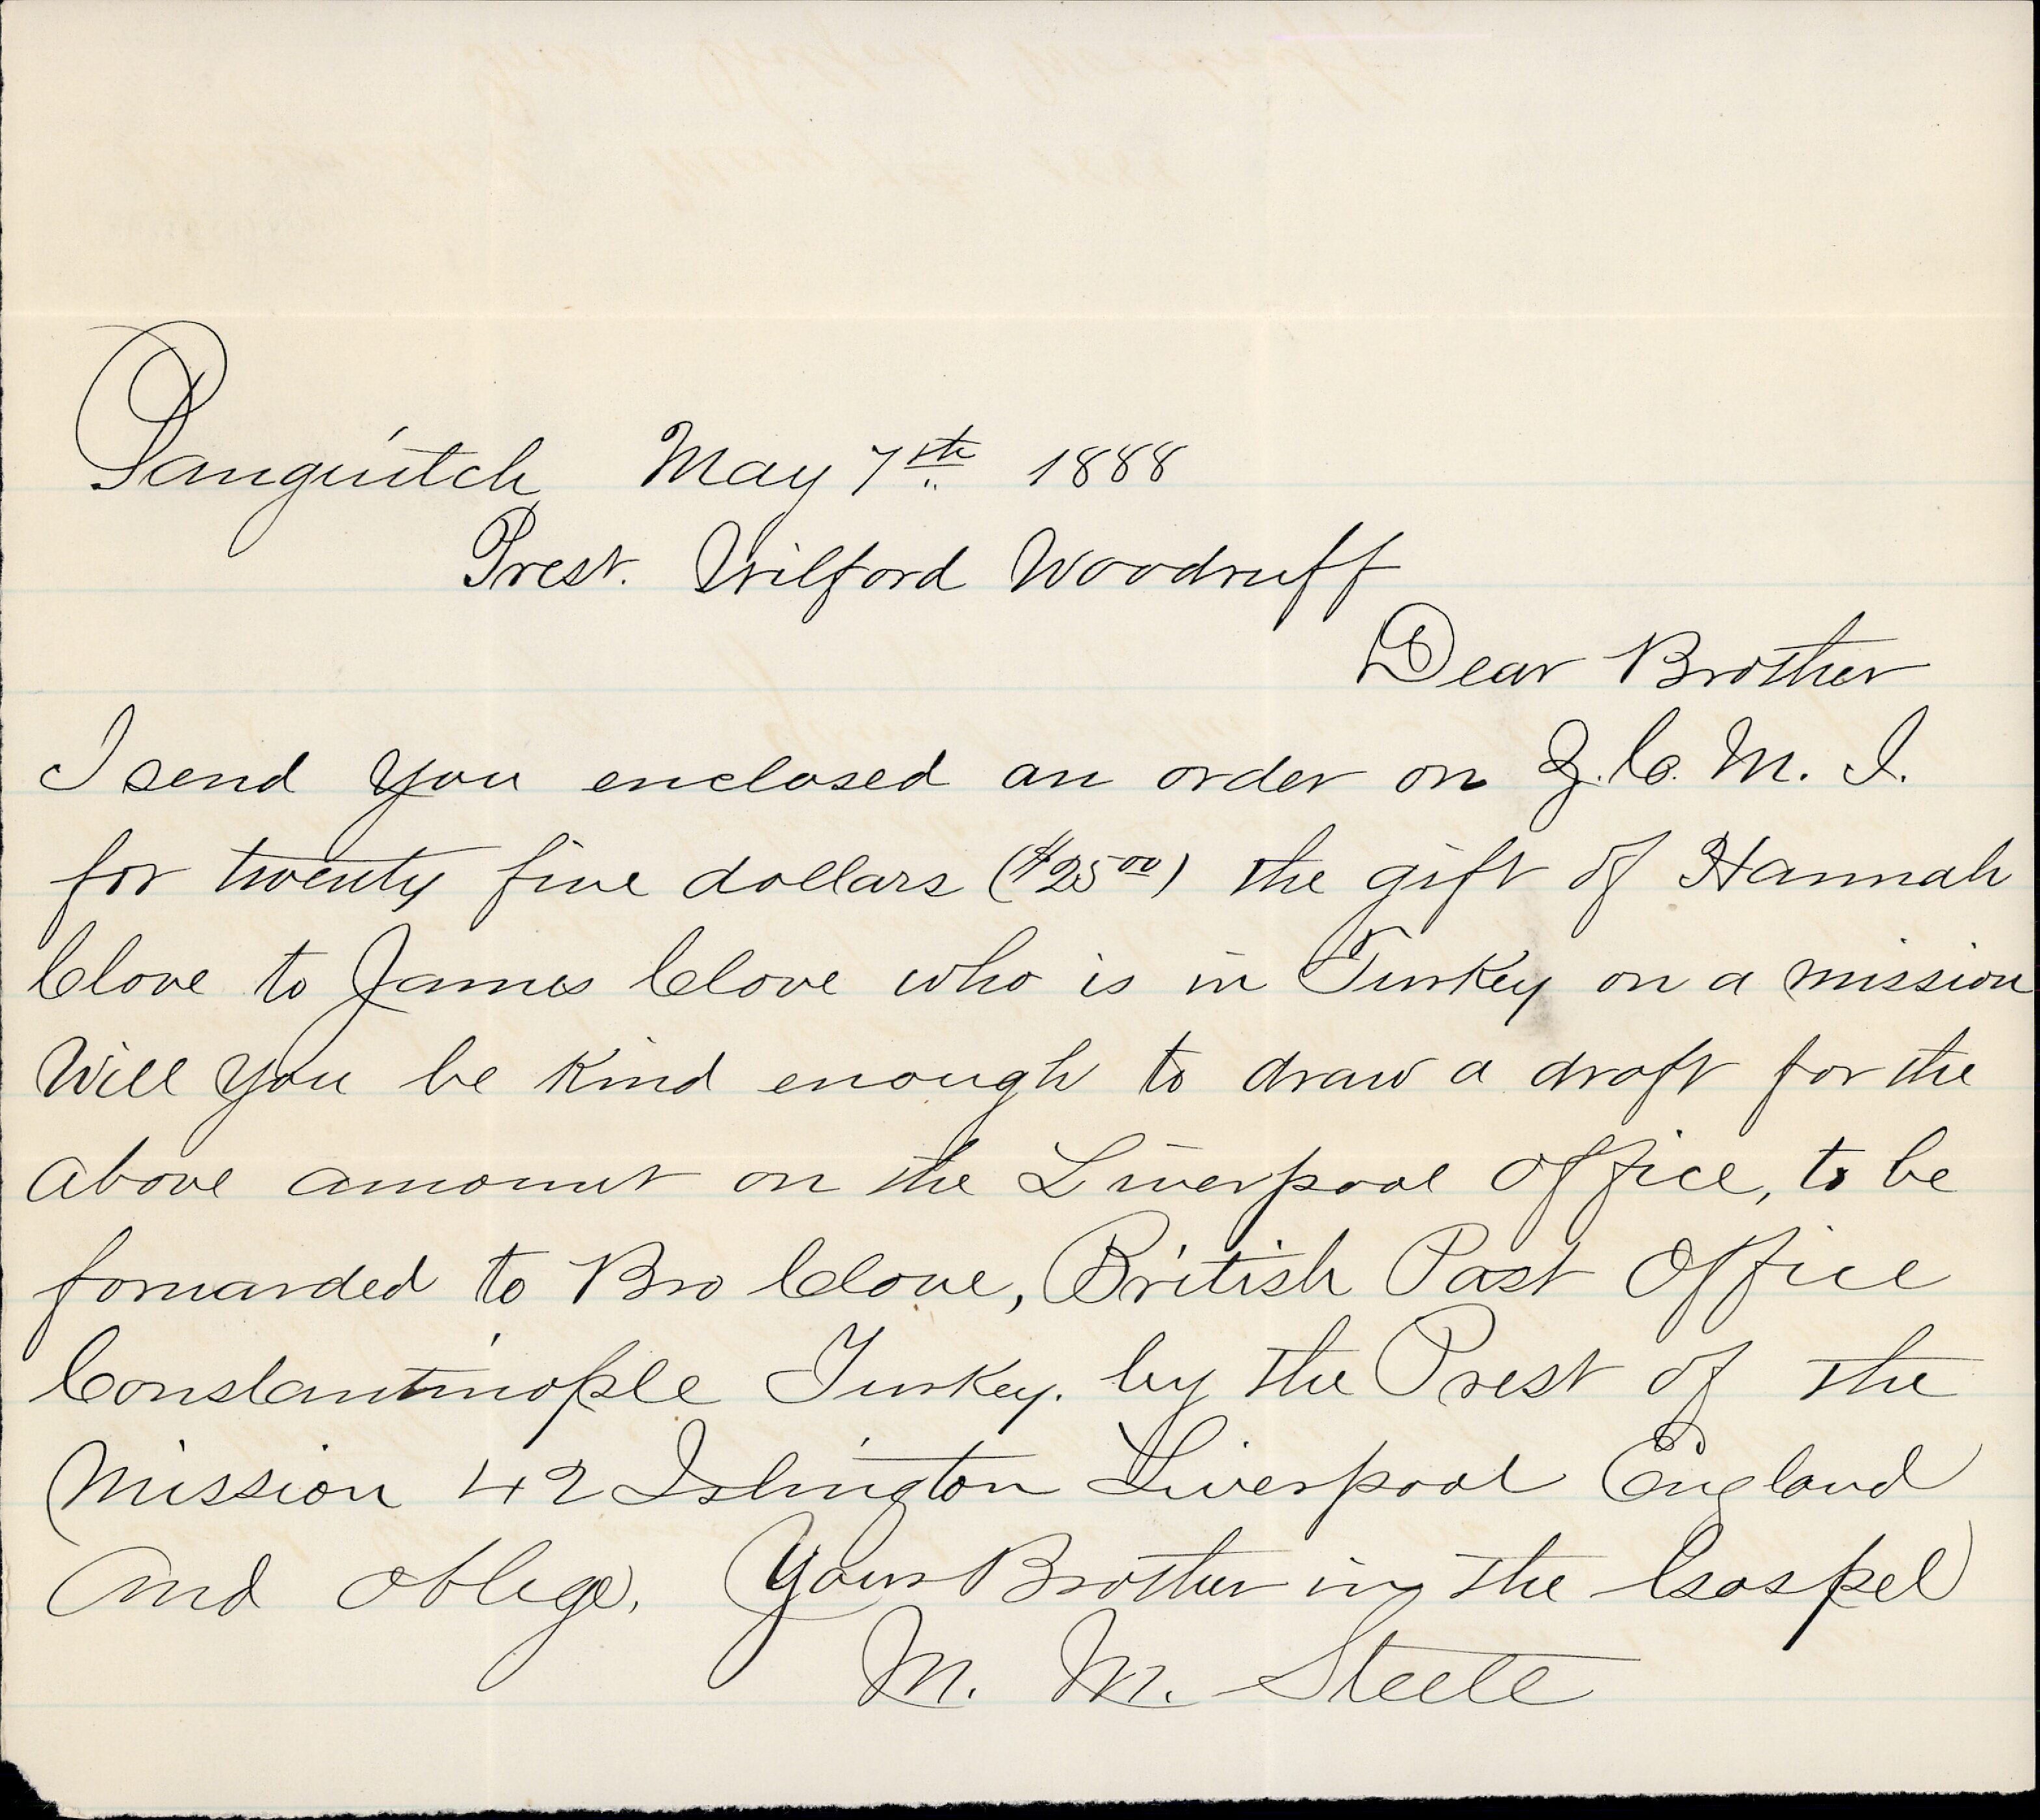 Panguitch May 7th 1888
Prest. Wilford Woodruff
Dear Brother
I send you enclosed an order on Z. C. M. I.
for twenty five dollars ($2500) the gift of Hannah
Clove to James Clove who is in Turkey on a mission
Will you be kind enough to draw a draft for the
above amount on the Liverpool office, to be
forwarded to Bro Clove, British Post Office
Constantinople Turkey. by the Prest of the
Mission 42 Islington Liverpool England
and oblege. Your Brother in the Gospel
M. M. Steele